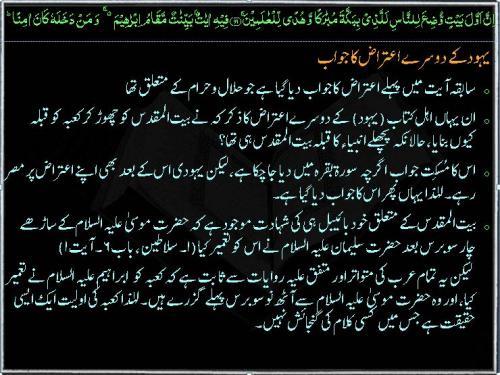 اِنَّ اَوَّلَ بَیْتٍ وُّضِعَ لِلنَّاسِ لَلَّذِیْ بِبَكَّةَ مُبٰرَكًا وَّهُدًی لِّلْعٰلَمِیْنَ ۚ﴿۹۶﴾ فِیْهِ اٰیٰتٌۢ بَیِّنٰتٌ مَّقَامُ اِبْرٰهِیْمَ ۚ۬ وَ مَنْ دَخَلَهٗ كَانَ اٰمِنًا ؕ
یہود کے دوسرے اعتراض کا جواب
سابقہ آیت میں پہلے اعتراض کا جواب دیا گیا ہے جو حلال و حرام کے متعلق تھا
ان یہاں اہل کتاب (یہود) کے دوسرے اعتراض کا ذکر کہ نے بیت المقدس کو چھوڑ کر کعبہ کو قبلہ
کیوں بنایا، حالانکہ پچھلے انبیاء کا قبلہ بیت المقدس ہی تھا؟
اس کا مسکت جواب اگرچہ سورۃ بقرہ میں دیا جا چکا ہے، لیکن یہودی اس کے بعد بھی اپنے اعتراض پر مصر
رہے۔ لہٰذا یہاں پھر اس کا جواب دیا گیا ہے۔
بیت المقدس کے متعلق خود بائیبل ہی کی شہادت موجود ہے کہ حضرت موسیٰ علیہ السلام کے ساڑھے
چار سو برس بعد حضرت سلیمان علیہ السلام نے اس کو تعمیر کیا (۱۔ سلاطین، باب ۶۔ آیت ۱)
لیکن یہ تمام عرب کی متواتر اور متفق علیہ روایات سے ثابت ہے کہ کعبہ کو ابراہیم علیہ السلام نے تعمیر
کیا، اور وہ حضرت موسیٰ علیہ السلام سے آٹھ نو سو برس پہلے گزرے ہیں۔ لہٰذا کعبہ کی اولیت ایک ایسی
حقیقت ہے جس میں کسی کلام کی گنجائش نہیں۔